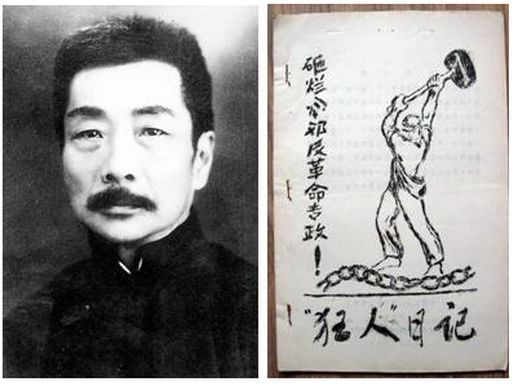 砸烂冷反革命专政！
"狂人"日记